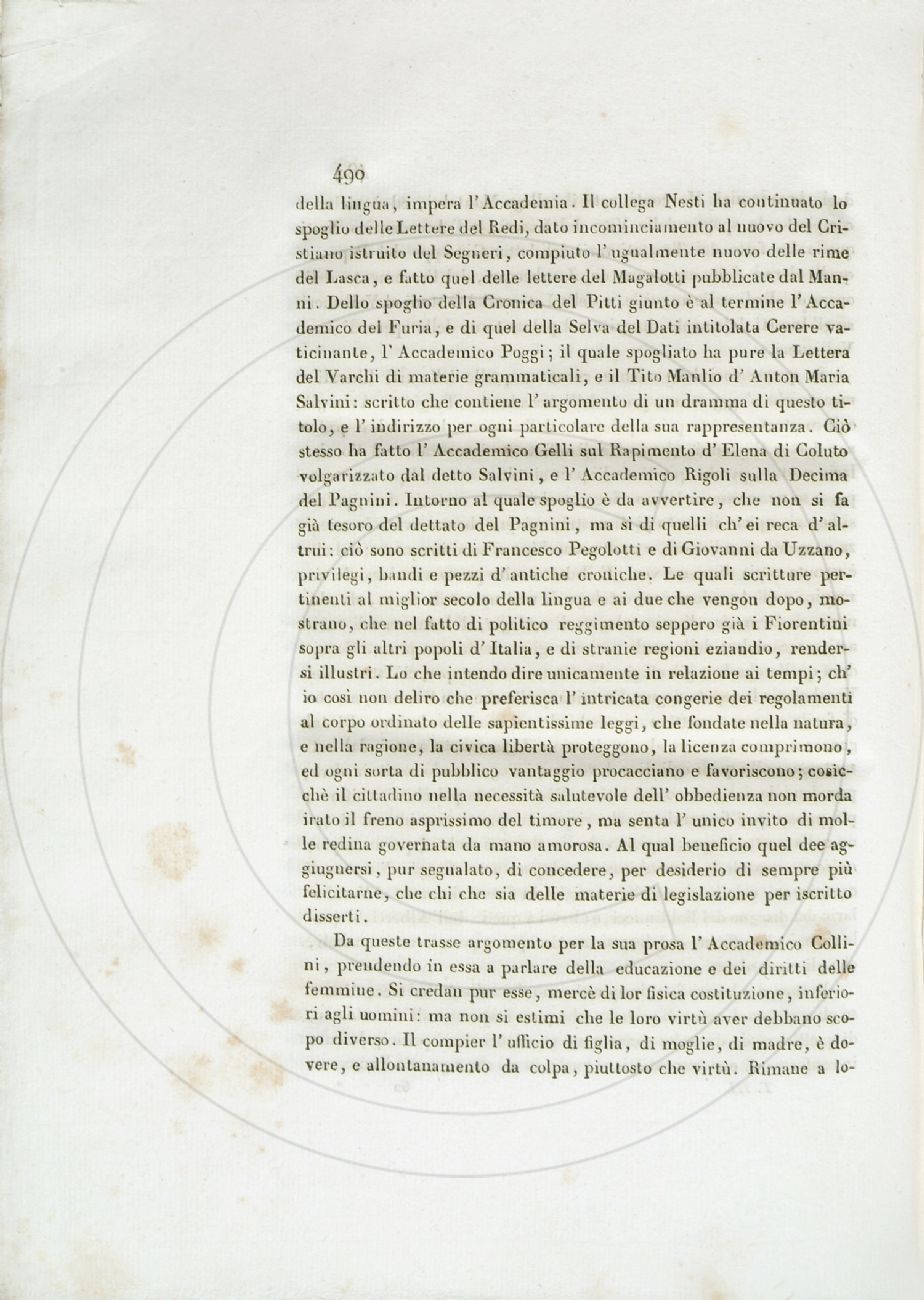 490
della lingua, impera l'Accademia. Il collega Nesti ha continuato lo
spoglio delle Lettere del Redi, dato incominciamento al nuovo del Cri-
stiano istruito del Segneri, compiuto l'ugualmente nuovo delle rime
del Lasca, e fatto quel delle lettere del Magalotti pubblicate dal Man-
ni. Dello spoglio della Cronica del Pitti giunto è al termine l'Acca-
demico del Furia, e di quel della Selva del Dati intitolata Cerere va-
ticinante, l'Accademico Poggi; il quale spogliato ha pure la Lettera
del Varchi di materie grammaticali, e il Tito Manlio d'Anton Maria
Salvini: scritto che contiene l'argomento di un dramma di questo ti-
tolo, e l'indirizzo per ogni particolare della sua rappresentanza. Ciò
stesso ha fatto l'Accademico Gelli sul Rapimento d'Elena di Coluto
volgarizzato dal detto Salvini, e l'Accademico Rigoli sulla Decima
del Pagnini. Intorno al quale spoglio è da avvertire, che non si fa
già tesoro del dettato del Pagnini, ma sì di quelli ch'ei reca d'al-
trui: ciò sono scritti di Francesco Pegolotti e di Giovanni da Uzzano,
privilegi, bandi e pezzi d'antiche croniche. Le quali scritture per-
tinenti al miglior secolo della lingua e ai due che vengon dopo, mo-
strano, che nel fatto di politico reggimento seppero già i Fiorentini
sopra gli altri popoli d'Italia, e di stranie regioni eziandio, render-
si illustri. Lo che intendo dire unicamente in relazione ai tempi; ch'
io così non deliro che preferisca l'intricata congerie dei regolamenti
al corpo ordinato delle sapientissime leggi, che fondate nella natura,
e nella ragione, la civica libertà proteggono, la licenza comprimono,
ed ogni sorta di pubblico vantaggio procacciano e favoriscono; cosic-
chè il cittadino nella necessità salutevole dell'obbedienza non morda
irato il freno asprissimo del timore, ma senta l'unico invito di mol-
le redina governata da mano amorosa. Al qual beneficio quel dee ag-
giugnersi, pur segnalato, di concedere, per desiderio di sempre più
felicitarne, che chi che sia delle materie di legislazione per iscritto
disserti.
Da queste trasse argomento per la sua prosa l'Accademico Colli-
ni, prendendo in essa a parlare della educazione e dei diritti delle
femmine. Si credan pur esse, mercè di lor fisica costituzione, inferio-
ri agli uomini: ma non si estimi che le loro virtù aver debbano sco-
po diverso. Il compier l'ufficio di figlia, di moglie, di madre, è do-
vere, e allontanamento da colpa, piuttosto che virtù. Rimane a lo-